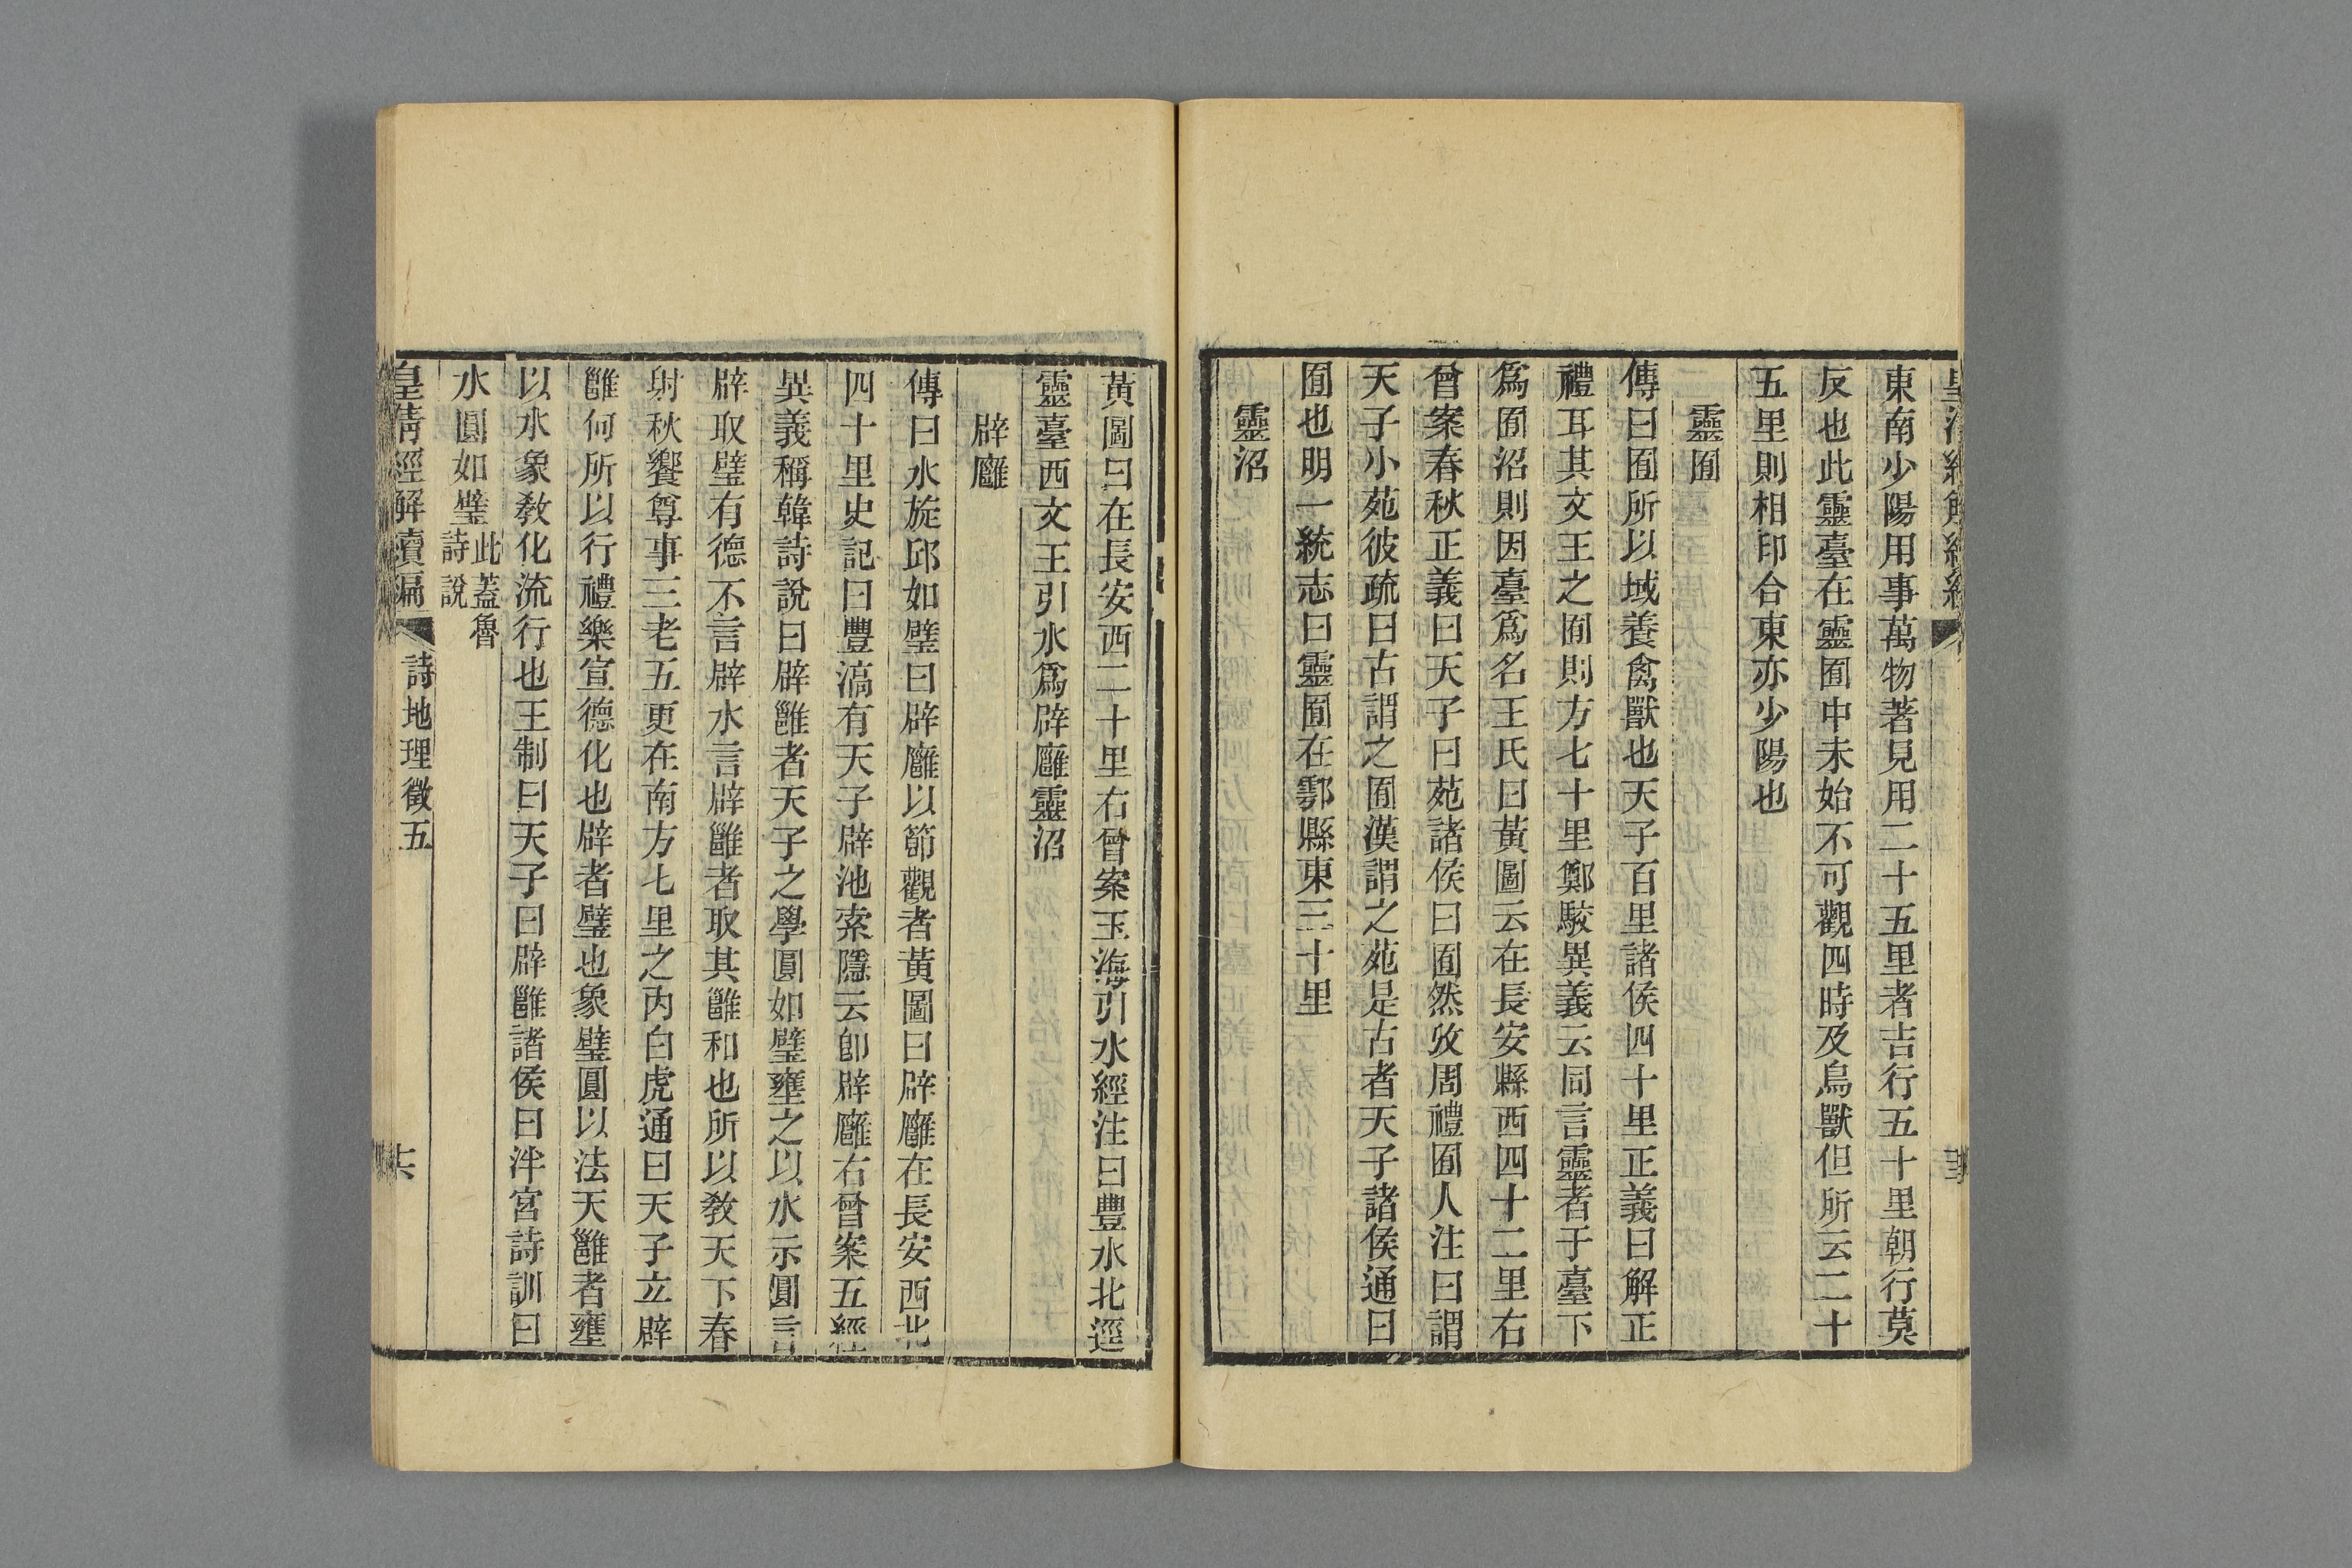 東南少陽用事萬物著見用二十五里者吉行五十里朝行莫
反也此靈臺在靈囿中未始不可觀四時及鳥獸但所云二十
五里則相印合東亦少陽也
靈囿
傳曰囿所以域養禽獸也天子百里諸侯四十里正義曰解正
禮耳其文王之囿則方七十里鄭駮異義云同言靈者于臺下
爲囿沼則因臺爲名王氏曰黃圖云在長安縣西四十二里右
曾案春秋正義曰天子曰苑諸侯曰囿然攷周禮囿人注曰謂
天子小苑彼疏曰古謂之囿漢謂之苑是古者天子諸侯通曰
囿也明一統志曰靈囿在鄠縣東三十里
靈沼
黃圖曰在長安西二十里右曾案玉海引水經注曰豐水北逕
靈臺西文王引水爲辟廱靈沼
辟廱
傳曰水旋邱如璧曰辟廱以節觀者黃圖曰辟廱在長安西北
四十里史記曰豐滈有天子辟池索隱云卽辟廱右曾案五經
異義稱韓詩說曰辟雝者天子之學圓如璧壅之以水示圓言
辟取璧有德不言辟水言辟雝者取其雝和也所以敎天下春
射秋饗尊事三老五更在南方七里之內白虎通曰天子立辟
雝何所以行禮樂宣德化也辟者璧也象璧圓以法天雝者壅
以水象敎化流行也王制曰天子曰辟雝諸侯曰泮宮詩訓曰
水圓如璧此蓋魯
詩說
皇清經解續編 詩地理徵五